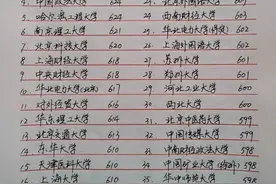 4. 中国政法大学 624
5. 哈尔滨工程大学 624
6. 南京理工大学 621
7. 北京科技大学 620
8. 上海财经大学 618
9. 中央财经大学 618
10. 华北电力大学(北京) 617
11. 对外经贸大学 616
12. 华东理工大学 614
13. 北京交通大学 613
14. 东华大学 610
15. 天津医科大学 610
16. 上海大学 610
23. 北京外国语大学 603
24. 西南财经大学 603
25. 华北电力大学(保定) 602
26. 上海外国语大学 602
27. 苏州大学 601
28. 郑州大学 601
29. 河北工业大学 600
30. 西北大学 600
31. 北京中医药大学 599
32. 中国传媒大学 599
33. 中南财经政法大学 599
34. 中国矿业大学 598
35. 华中师范大学